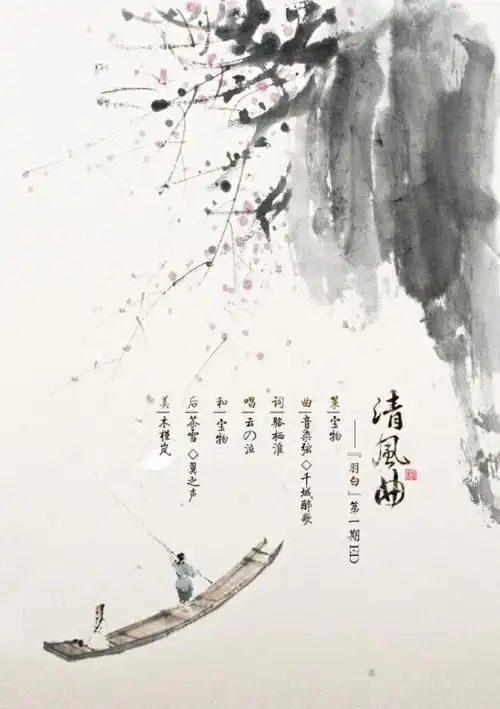 清風曲
——『羽白』第一期ED
策|宝物
曲|音染弦◇千城醉歌
词|骆栖淮
唱|云の泣
和|宝物
后|苍雪◇翼之声
美|木槿岚